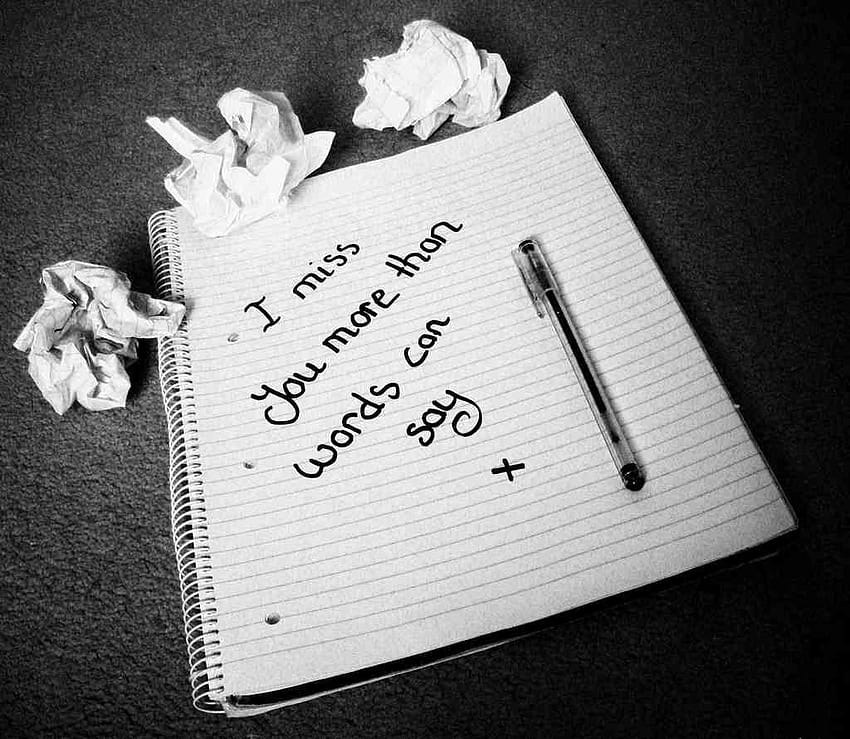 I miss
You more than
words can
say
+